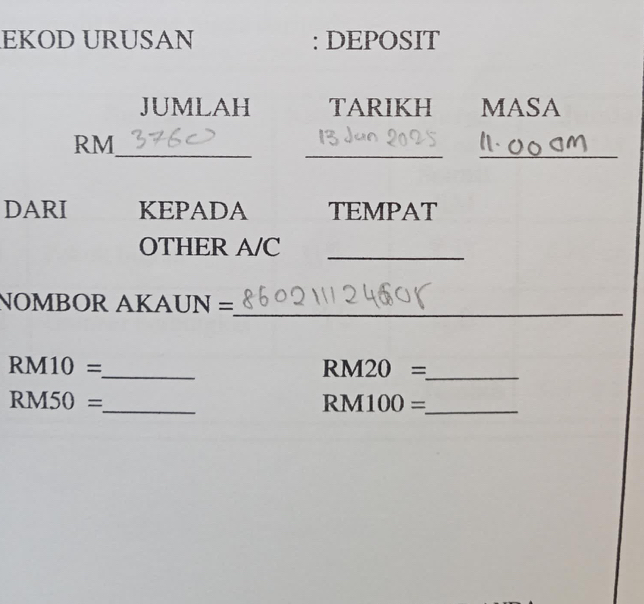 EKOD URUSAN : DEPOSIT
JUMLAH TARIKH MASA
RM 3760 13 Jun 2025 11.00 am
DARI KEPADA TEMPAT
OTHER A/C
NOMBOR AKAUN =
RM10 = RM20 =
RM50 = RM100 =